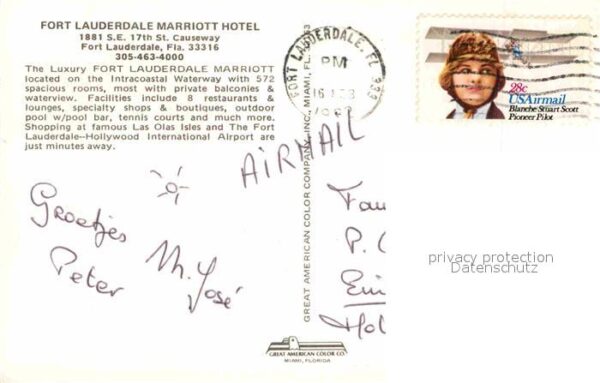 FORT LAUDERDALE MARRIOTT HOTEL
1881 S.E. 17th St. Causeway
Fort Lauderdale, Fla. 33316
305-463-4000
The Luxury FORT LAUDERDALE MARRIOTT
located on the Intracoastal Waterway with 572
spacious rooms, most with private balconies &
waterview. Facilities include 8 restaurants &
lounges, specialty shops & boutiques, outdoor
pool w/pool bar, tennis courts and much more.
Shopping at famous Las Olas Isles and The Fort
Lauderdale-Hollywood International Airport are
just minutes away.
Groetjes
Peter M. José
AIRMAIL
GREAT AMERICAN COLOR COMPANY, INC., MIAMI, FL.
GREAT AMERICAN COLOR CO.
MIAMI, FLORIDA
FORT LAUDERDALE, FL 333
PM
28c
USAirmail
Blanche Stuart Scott
Pioneer Pilot
Fam
P.
Hol
privacy protection
Datenschutz